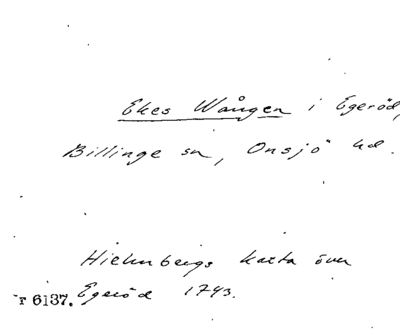 Ekes Wången i Egeröd,
Billinge sn, Onsjö hd.
Hielmbergs karta över
Egeröd 1743.
r 6137.